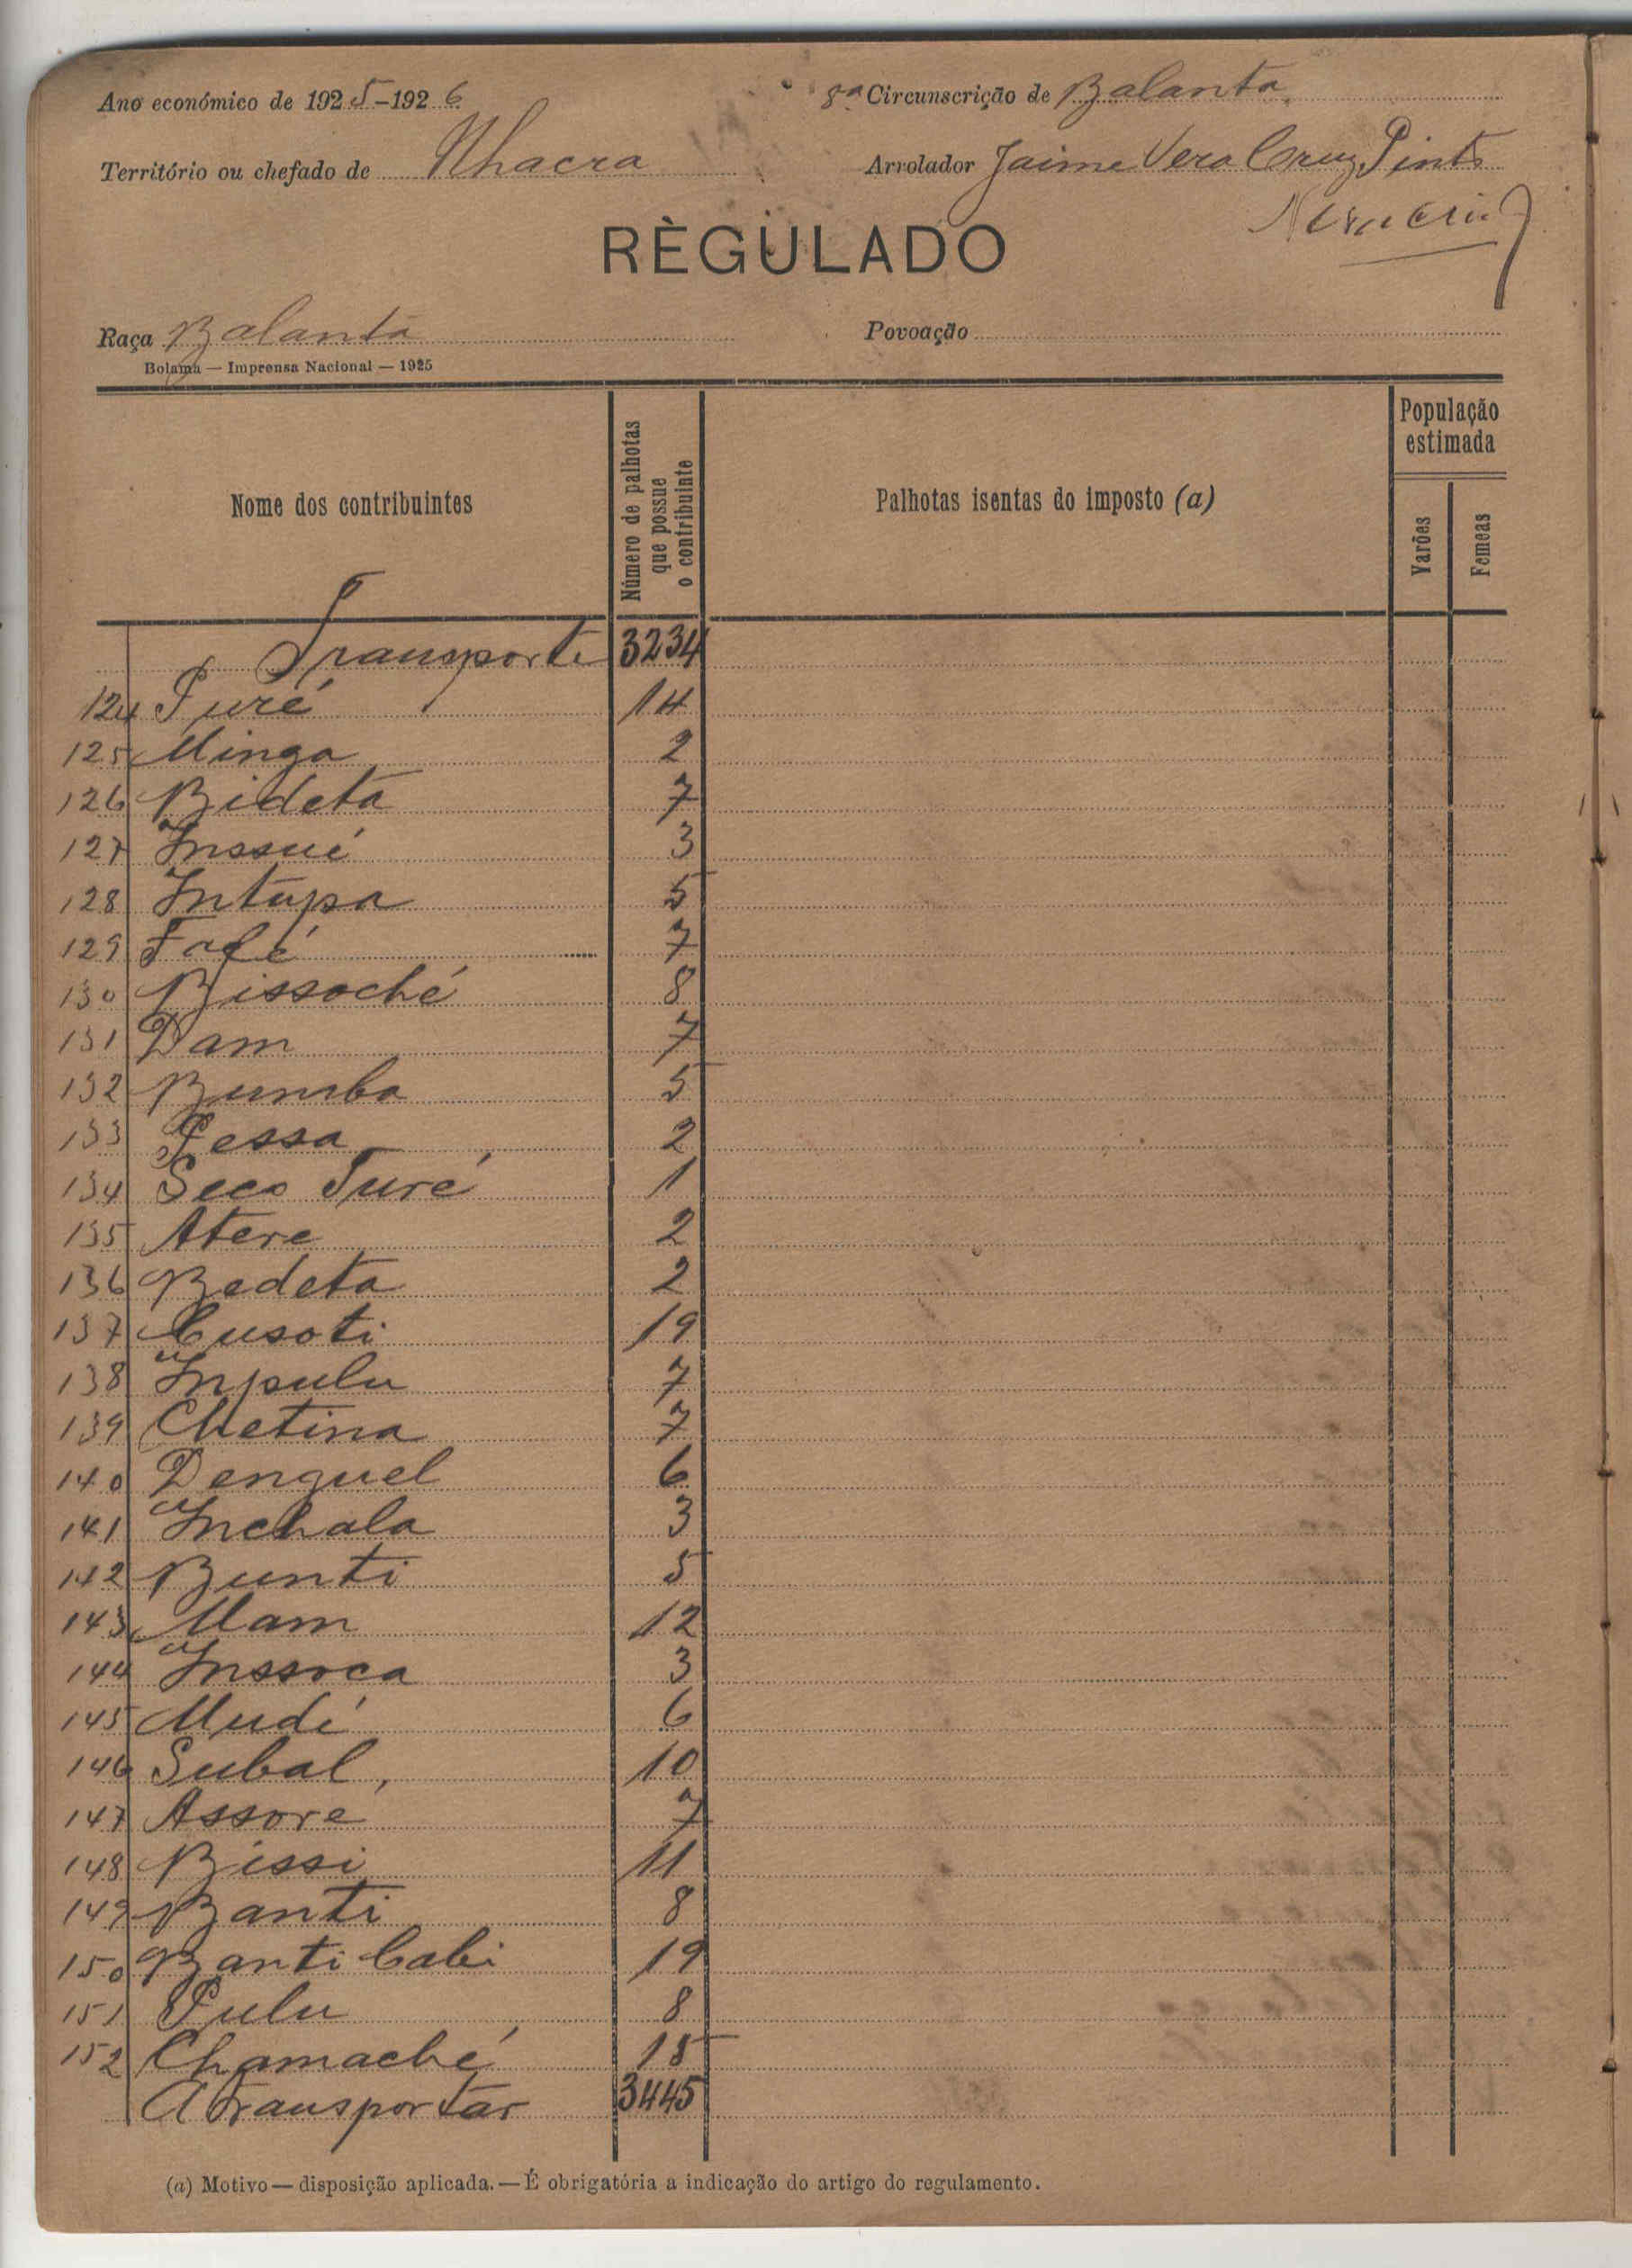 Ano económico de 1925-1926
8ª Circunscrição de Balanta
Território ou chefado de Nhacra
Arrolador Jaime Vera Cruz Pinto
REGULADO
Raça Balanta
Povoação
Bolama — Imprensa Nacional — 1925
Nome dos contribuintes
Número de palhotas que possue o contribuinte
Palhotas isentas do imposto (a)
População estimada
Varões
Femeas
Transporte 3234
124 Turé 14
125 Minga 2
126 Bideta 7
127 Inssué 3
128 Intupa 5
129 Fofé 7
130 Bissoché 8
131 Dam 7
132 Bumba 5
133 Pessa 2
134 Seco Turé 1
135 Atere 2
136 Bedeta 2
137 Cusoti 19
138 Inpulu 7
139 Chetina 7
140 Denguel 6
141 Inchala 3
142 Bunti 5
143 Mam 12
144 Inssoca 3
145 Mudé 6
146 Subal 10
147 Assoré 7
148 Bissi 11
149 Banti 8
150 Banti Cabi 19
151 Pulu 8
152 Chamaché 15
A transportar 3445
(a) Motivo — disposição aplicada. — É obrigatória a indicação do artigo do regulamento.